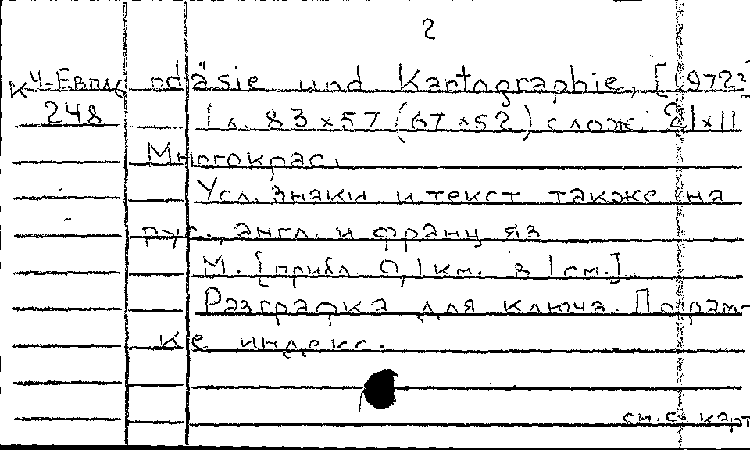 2
К4-Европ odäsie und Kartographie, [1972]
248 1 л. 83×57 (67×52) слож. 21×11
Многокрас.
Усл. знаки и текст также на
рус., англ. и франц яз
М. [прибл 0,1км. в 1см.]
Разграфка для ключа. По рам-
ке индекс.
см. сл. карт